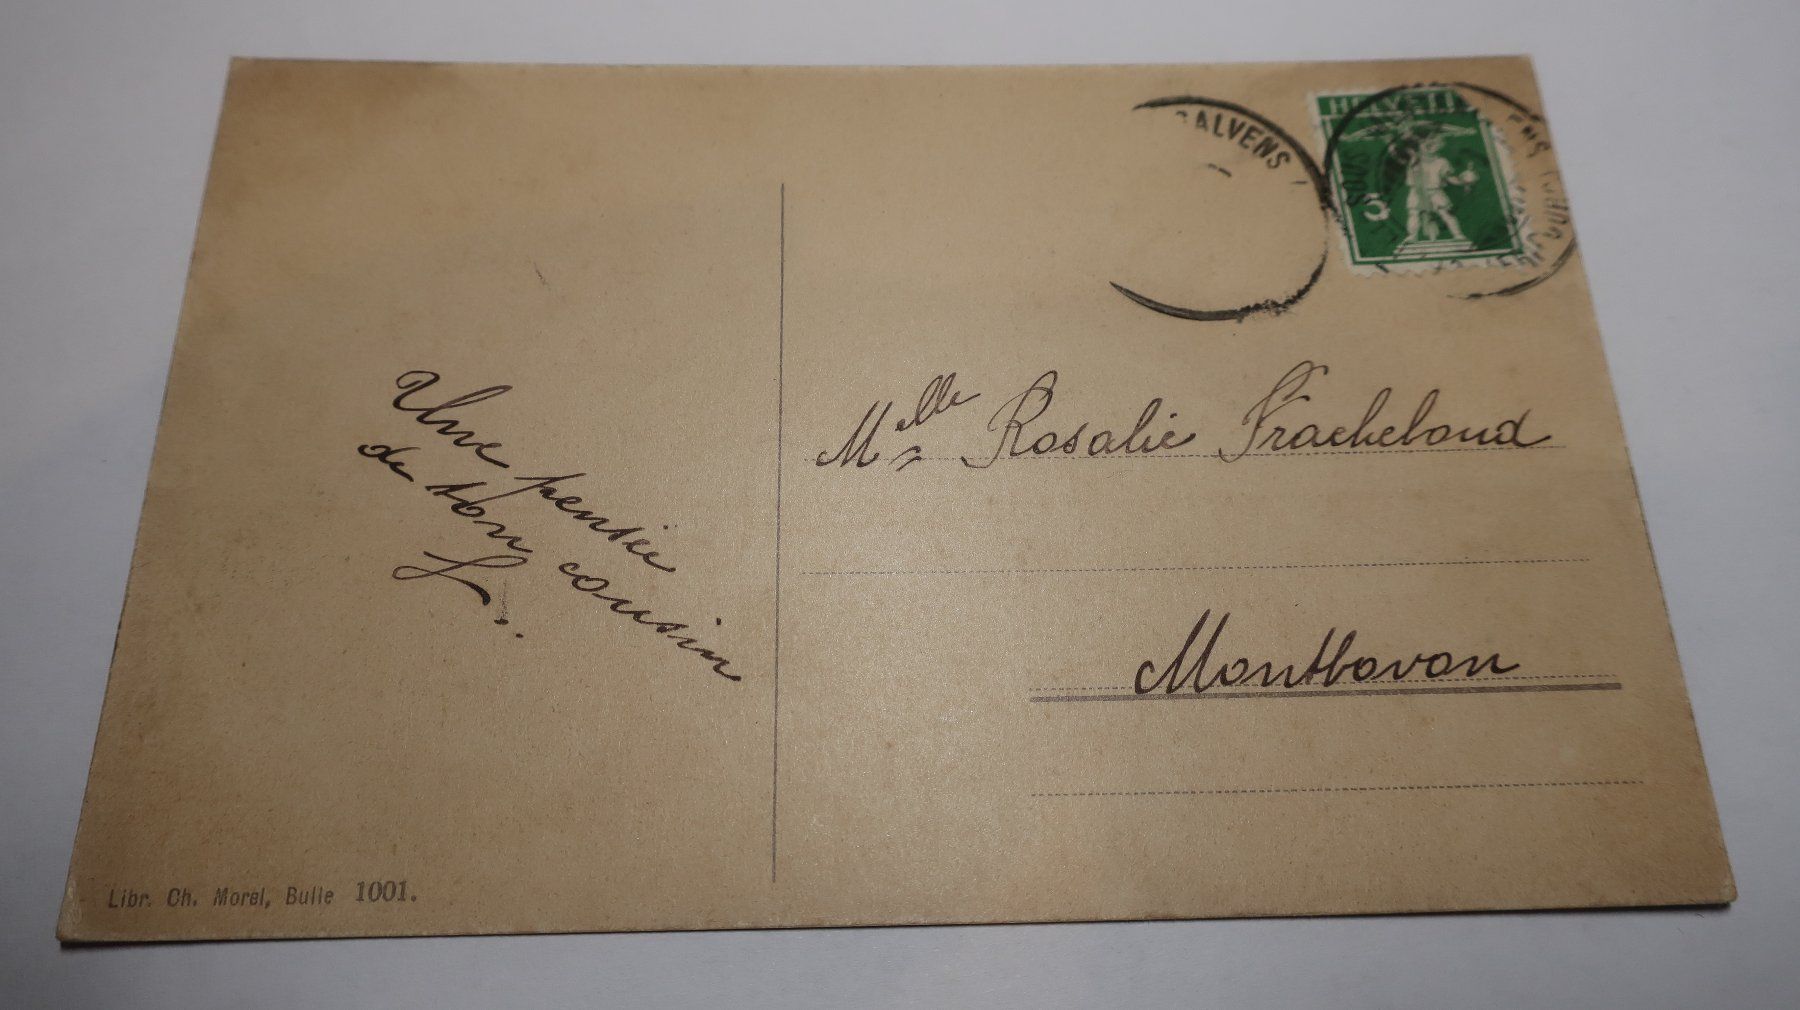 Une pensée
de ton cousin
L..
Melle Rosalie Fracheboud
Montbovon
HELVETIA
5
Libr. Ch. Morel, Bulle 1001.